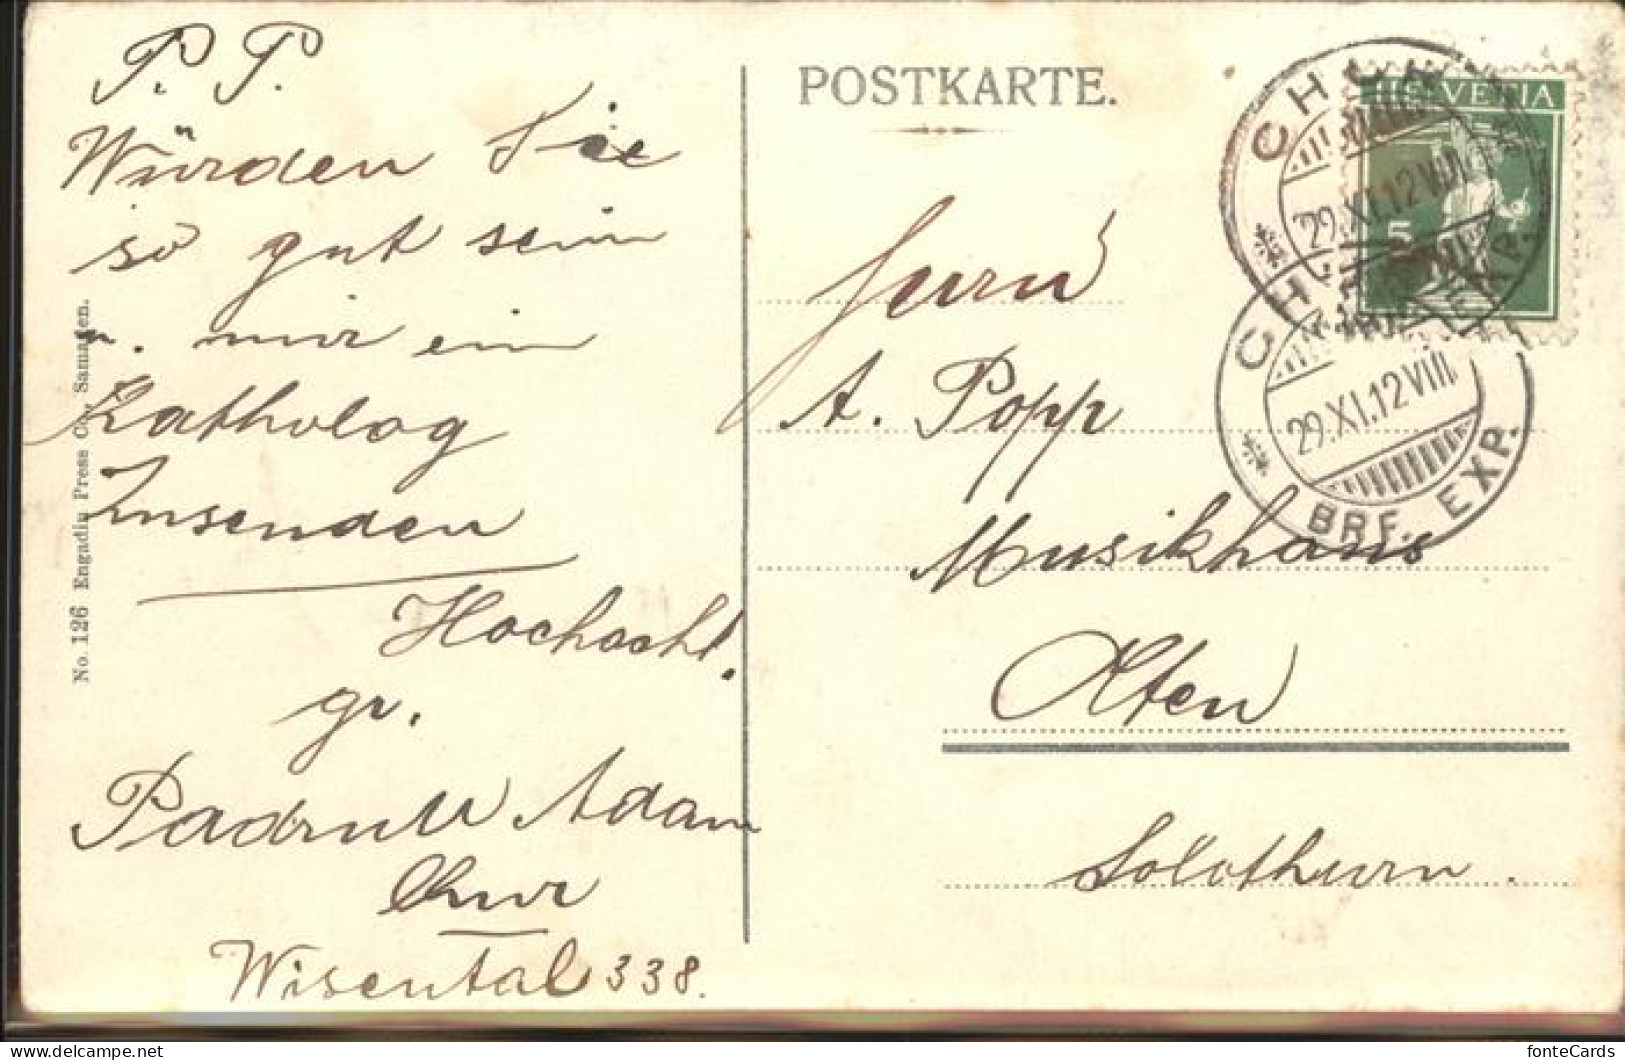 P. P.
Würden Sie
so gut sein
u. mir ein
Katholog
Zusenden
Hochacht.
gr.
Padrutt Adam
Chur
Wisental 338.
No. 126 Engadin Press Co., Samaden.
POSTKARTE.
HELVETIA
5
CHUR
29.XI.12 VIII
BRF. EXP.
CHUR
29.XI.12 VIII
BRF. EXP.
Herrn
A. Popp
Musikhaus
Olten
Solothurn.
fonteCards